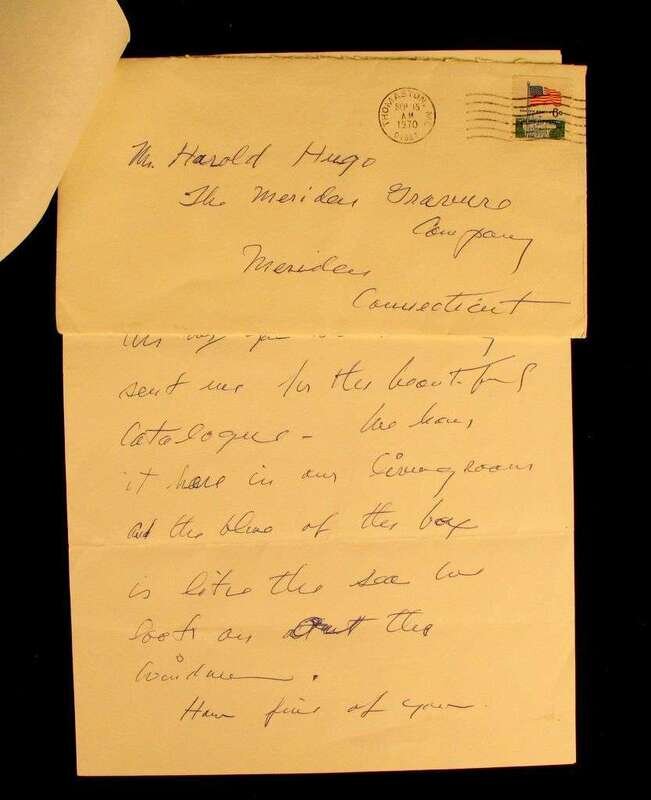 THOMASTON, ME
SEP 15
AM
1970
6c
Mr. Harold Hugo
The Meriden Gravure
Company
Meriden
Connecticut
sent me for the beautiful
Catalogue – We have
it here in our livingroom
and the blue of the box
is like the sea we
look on out the
window.
How fine of you